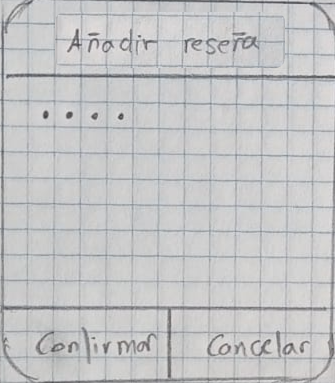 Añadir reseña
. . . .
Confirmar
Cancelar